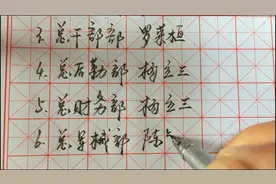 3. 总干部部 罗荣桓
4. 总后勤部 杨立三
5. 总财务部 杨立三
6. 总军械部 陈